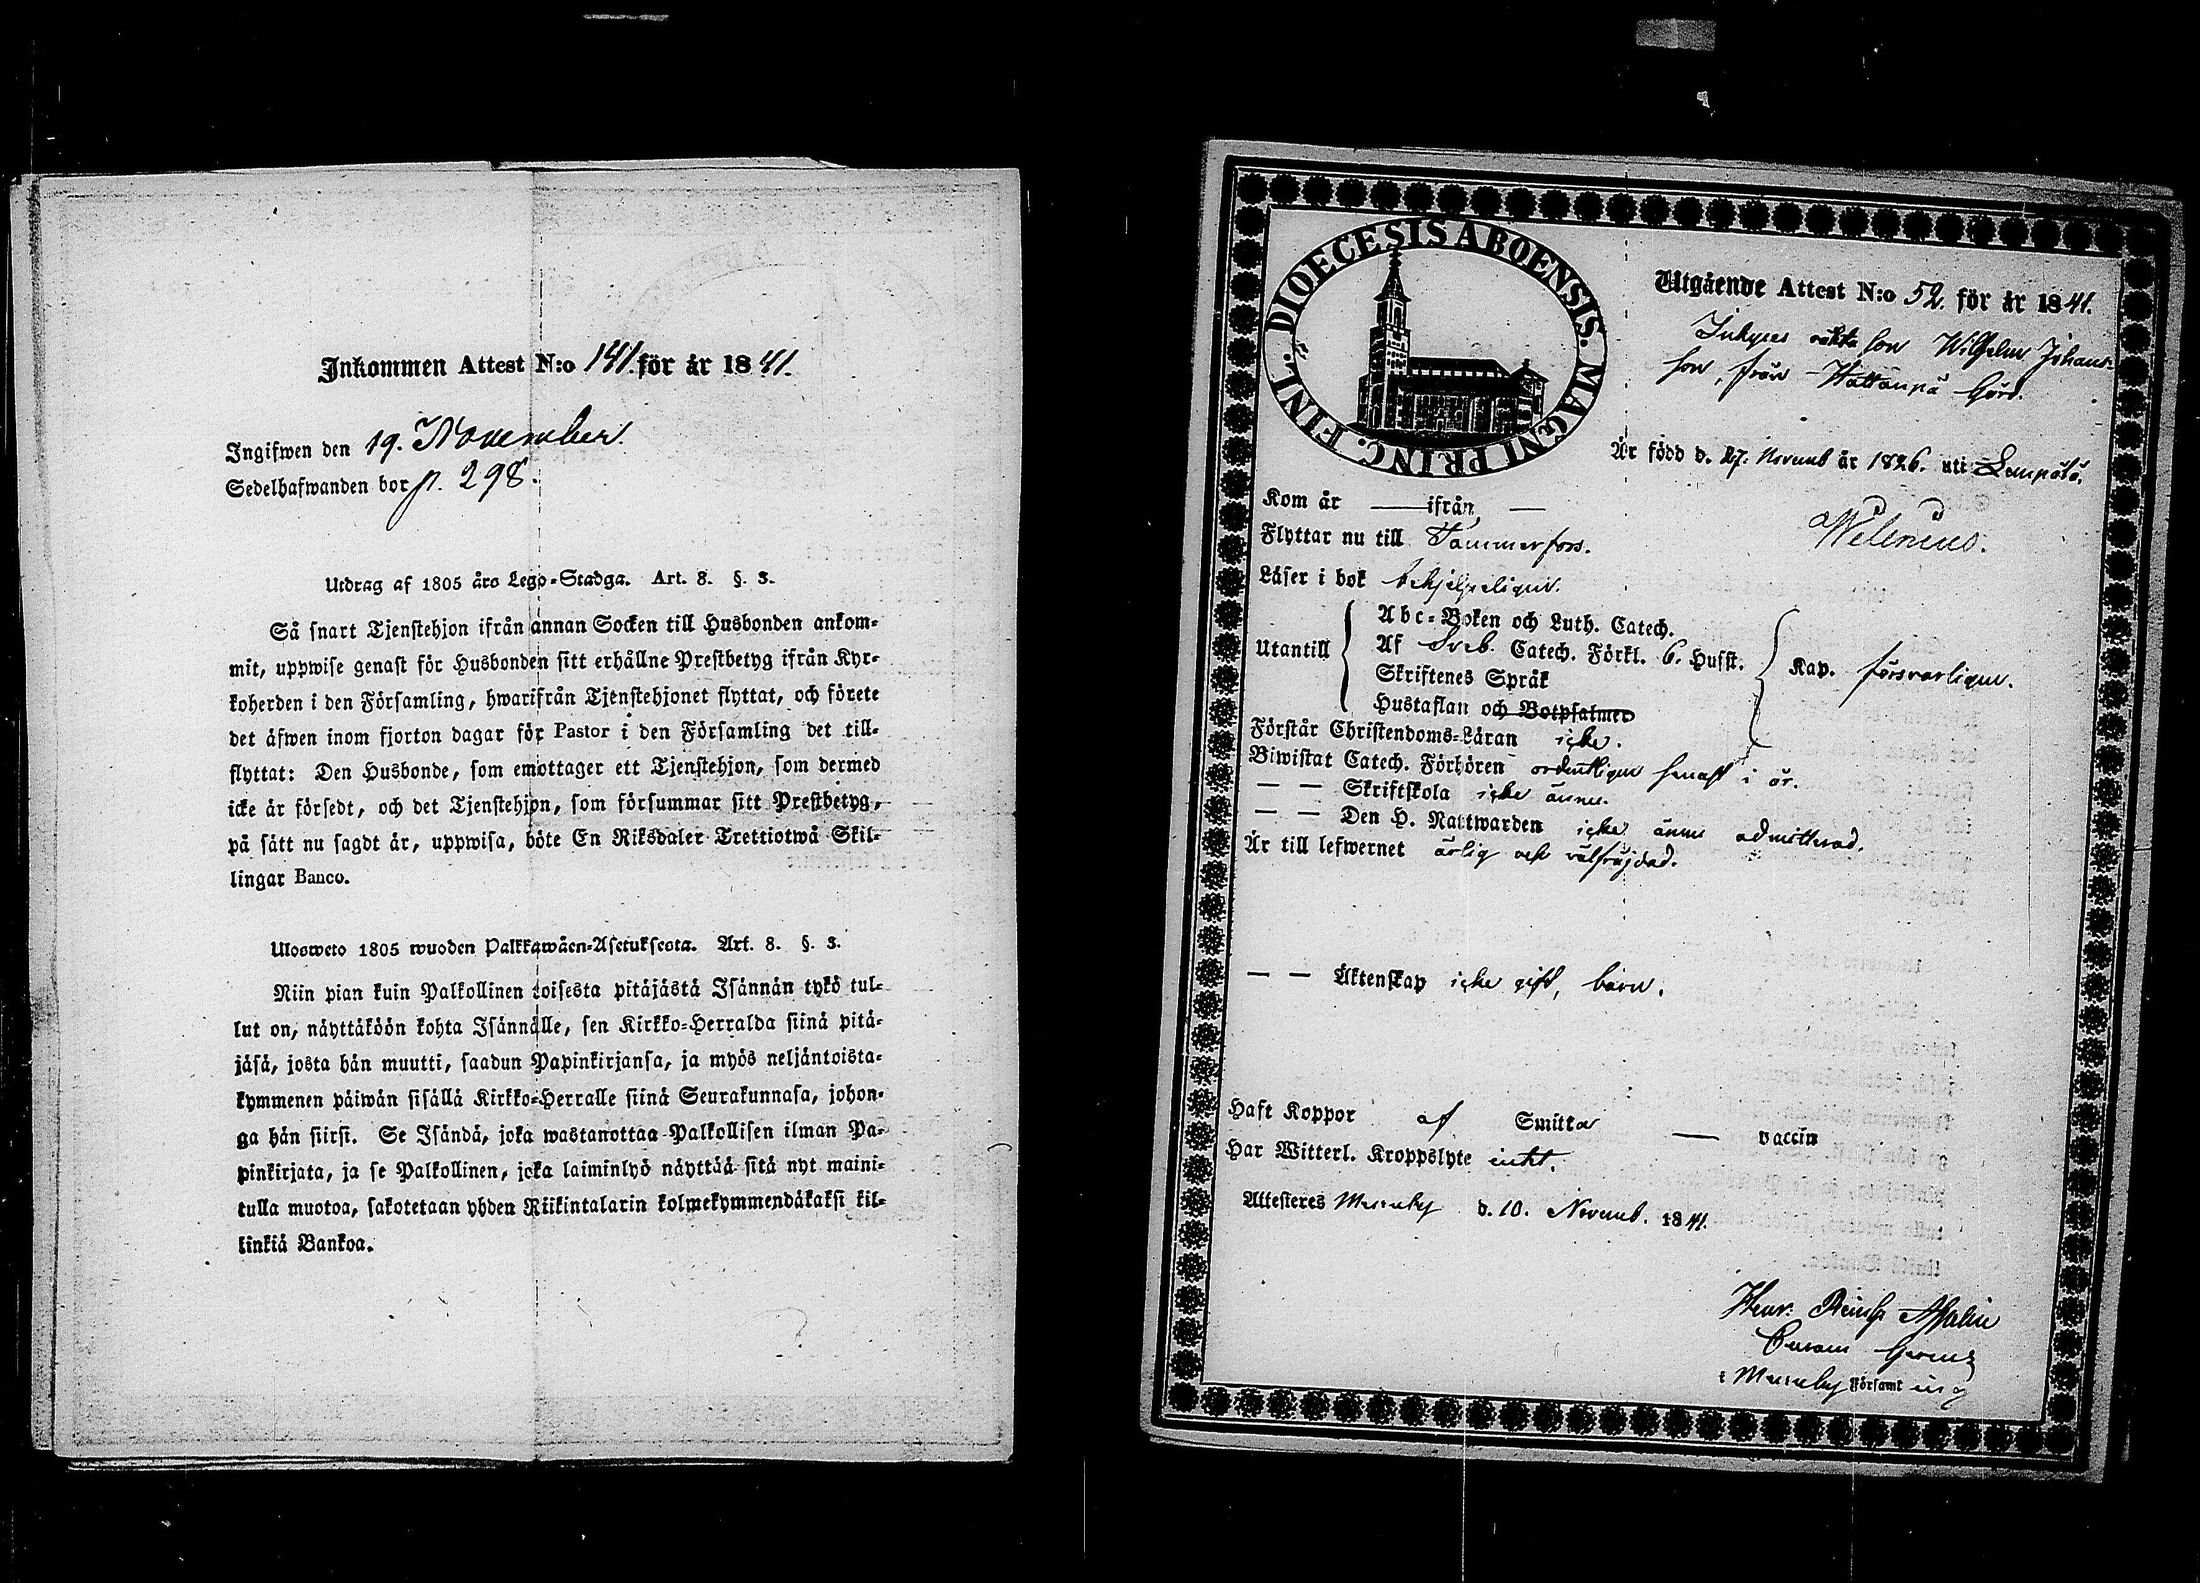 Inkommen Attest N:o 141. för år 1841.
Ingifwen den 19. November.
Sedelhafwanden bor p. 298.
Utdrag af 1805 års Lego-Stadga. Art. 8. §. 3.
Så snart Tjenstehjon ifrån annan Socken till Husbonden ankom-
mit, uppwise genast för Husbonden sitt erhållne Prestbetyg ifrån Kyr-
koherden i den Församling, hwarifrån Tjenstehjonet flyttat, och förete
det äfwen inom fjorton dagar för Pastor i den Församling det till-
flyttat: Den Husbonde, som emottager ett Tjenstehjon, som dermed
icke är försedt, och det Tjenstehjon, som försummar sitt Prestbetyg,
på sätt nu sagdt är, uppwisa, böte En Riksdaler Trettiotwå Skil-
lingar Banco.
Ulosweto 1805 wuoden Palkkawäen-Asetuksesta. Art. 8. §. 3.
Niin pian kuin Palkollinen toisesta pitäjästä Isännän tykö tul-
lut on, näyttäköön kohta Isännälle, sen Kirkko-Herralda siinä pitä-
jäsä, josta hän muutti, saadun Papinkirjansa, ja myös neljäntoista-
kymmenen päiwän sisällä Kirkko-Herralle siinä Seurakunnasa, johon-
ga hän siirsi. Se Isändä, joka wastanottaa Palkollisen ilman Pa-
pinkirjata, ja se Palkollinen, joka laiminlyö näyttää sitä nyt maini-
tulla muotoa, sakotetaan yhden Riikintalarin kolmekymmendäkaksi kil-
linkiä Bankoa.
DIOECESIS ABOENSIS. MAGNI PRINC. FINL.
Utgående Attest N:o 52. för år 1841.
Inhyses äkta son Wilhelm Johans-
son, från Hattanpä Gård.
Är född d. 27. Novemb år 1826. uti Lempälä.
Welenius.
Kom år — ifrån —
Flyttar nu till Tammerfors.
Läser i bok behjelpeligen.
Utantill
Abc-Boken och Luth. Catech.
Af Sveb. Catech. Förkl. 6. Hufst.
Skriftenes Språk
Hustaflan och Botpsalmer
Kap. försvarligen.
Förstår Christendoms-Läran icke.
Biwistat Catech. Förhören ordentligen senast i år.
— — Skriftskola icke ännu.
— — Den H. Nattwarden icke ännu admitterad.
Är till lefwernet ärlig och välfräjdad.
— — Äktenskap icke gift, barn.
Haft Koppor af Smitta — vaccin
Har Witterl. Kroppslyte intet.
Attesteres Messuby d. 10. Novemb. 1841.
Henr: Reinh:
i Messuby Församling